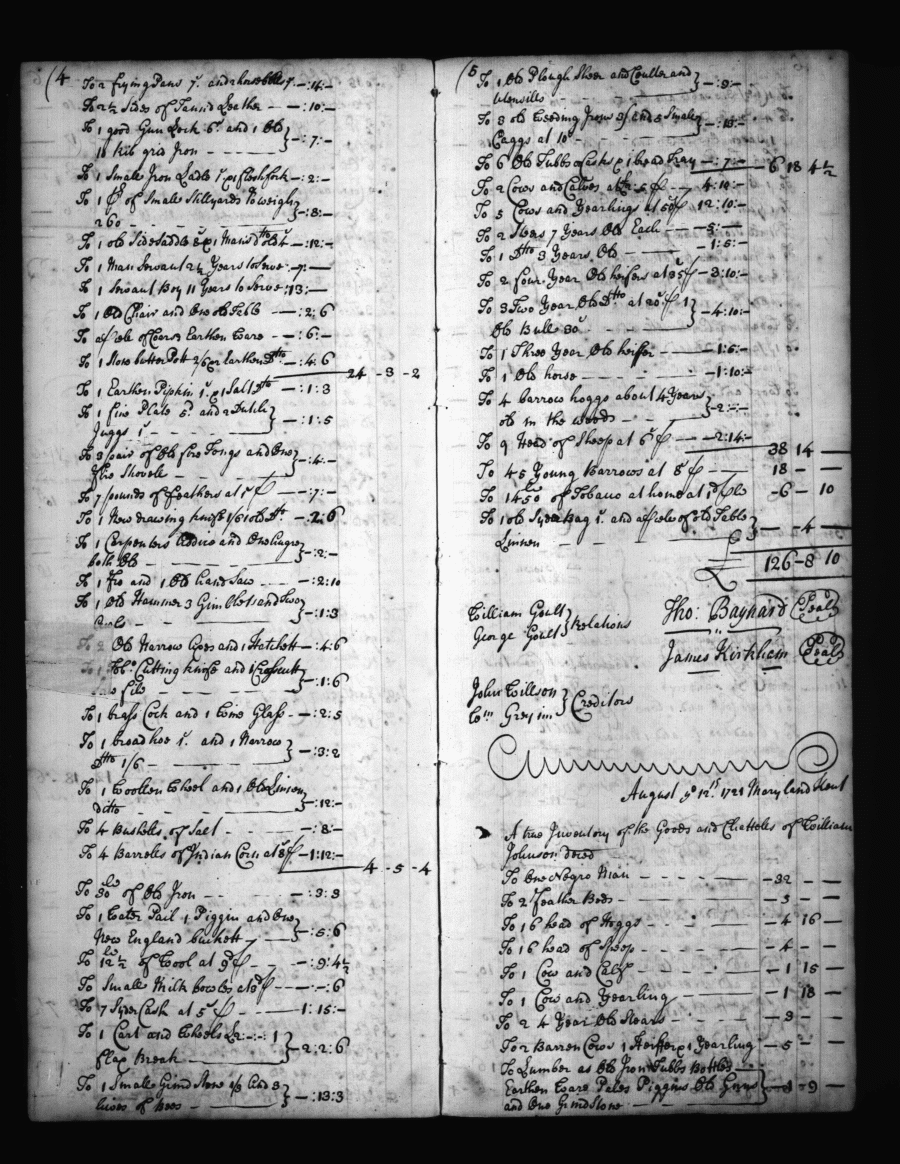 (4
To 2 frying Pans 7s. and 2 horse bells 7 -:14:-
To 2½ Sides of Tann'd Leather -:10:-
To 1 good Gun Lock 6s. and 1 Old } -:7:-
grid Iron
To 1 Small Iron Ladle 1s. & 1 fleshfork -:2:-
To 1 pr of Small Stillyards to weigh } -:8:-
260
To 1 old Side Saddle & 1 Mans Dtto -:12:-
To 1 Man Servant 2½ Years to Serve :9:-
To 1 Servant Boy 11 Years to Serve :13:-
To 1 Old Chair and One old Table -:2:6
To a pcle of Coars Earthen Ware -:6:-
To 1 Stone butter Pott 2/6 or Earthen Dtto -:4:6
24 - 3 - 2
To 1 Earthen Pipkin 1s. & 1 Salt Dtto -:1:3
To 1 fire Plate 5d. and 2 Dutch } -:1:5
Juggs 1s.
To 3 pair of Old fire Tongs and One } -:4:-
fire Shovele
To 7 pounds of Feathers at 1s p -:7:-
To 1 New drawing knife 1/6 1 old Dto -:2:6
To 1 Carpenters Addice and One Auger } -:2:-
both Old
To 1 Fro and 1 Old hand Saw -:2:10
To 1 Old Hammer 3 Gimblets and Two } -:1:3
To 2 Old Narrow Axes and 1 Hatchett -:4:6
To 1 Cutting knife and 1 Crosscutt } -:1:6
file
To 1 brass Cock and 1 Wine Glass -:2:5
To 1 broad hoe 1s. and 1 Narrow } -:3:2
Dtto 1/6
To 1 Woollen Wheel and 1 Old Linnen } -:12:-
ditto
To 4 Bushells of Salt -:8:-
To 4 Barrells of Indian Corn at 8s p -1:12:-
4 - 5 - 4
To 30 lb of Old Iron -:3:3
To 1 Water Pail 1 Piggin and One } -:5:6
New England buckett
To 12½ lb of Wool at 9d p -:9:4½
To Small Milk bowles at p -:-:6
To 7 Syder Cask at 5s p 1:15:-
To 1 Cart and Wheels £2:-:- 1 } -2:2:6
flax Break
To 1 Small Grind Stone 1/3 and 3 } -:13:3
hives of Bees
(5
To 1 Old Plough Shear and Coulter and } -:9:-
Utensills
To 3 old Weeding Irons 3/ and 5 Small } -:13:-
Caggs at 10
To 6 Old Tubbs & Casks & 1 bread Tray -:7:- 6 18 4½
To 2 Cows and Calves at 45s p 4:10:-
To 5 Cows and Yearlings at 50s p 12:10:-
To 2 Stears 7 Years Old Each -5:-
To 1 Dtto 3 Years Old -1:5:-
To 2 four Year Old heifers at 35s p -3:10:-
To 3 Two Year Old Dtto at 20s p 1 } -4:10:-
Old Bull 30s
To 1 Three Year Old heiffer -1:5:-
To 1 Old horse -1:10:-
To 4 barrow hoggs about 4 Years } -2:-:-
old in the woods
To 9 Head of Sheep at 6s p -2:14:-
38 14 -
To 45 Young Barrows at 8s p 18 - -
To 1450 lb of Tobaco at home at 1d p lb -6 - 10
To 1 old Syder Bag 1s. and a pcle of old Table } - -4 -
Linnen
£ 126-8 10
William Goult } Relations Tho: Baynard (Seal)
George Goult
James Kirkham (Seal)
John Willson } Creditors
Wm Greyim
August ye 12th 1721 Maryland Kent
A true Inventory of the Goods and Chatteles of William
Johnson deced
To One Negro Man -32 - -
To 2 Feather Beds -5 - -
To 16 head of Hoggs -4 16 -
To 16 head of Sheep -4 - -
To 1 Cow and Calf -1 15 -
To 1 Cow and Yearling -1 18 -
To 2 4 Year Old Stears -3 - -
To 2 Barren Cows 1 Heiffer & 1 Yearling -5 - -
To Lumber as Old Iron Tubbs Bottles }
Earthen Ware Pales Piggins Old Guns } - -9 -
and One Grindstone